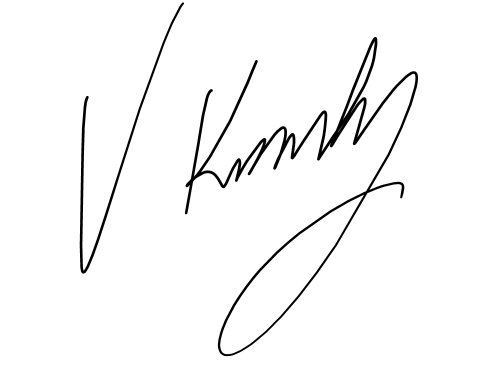 V Kennedy